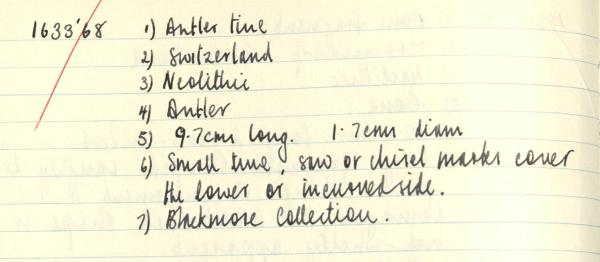 1633'68 1) Antler tine
2) Switzerland
3) Neolithic
4) Antler
5) 9.7cms long. 1.7cms diam
6) Small tine, saw or chisel marks cover
the lower or incurved side.
7) Blackmore Collection.